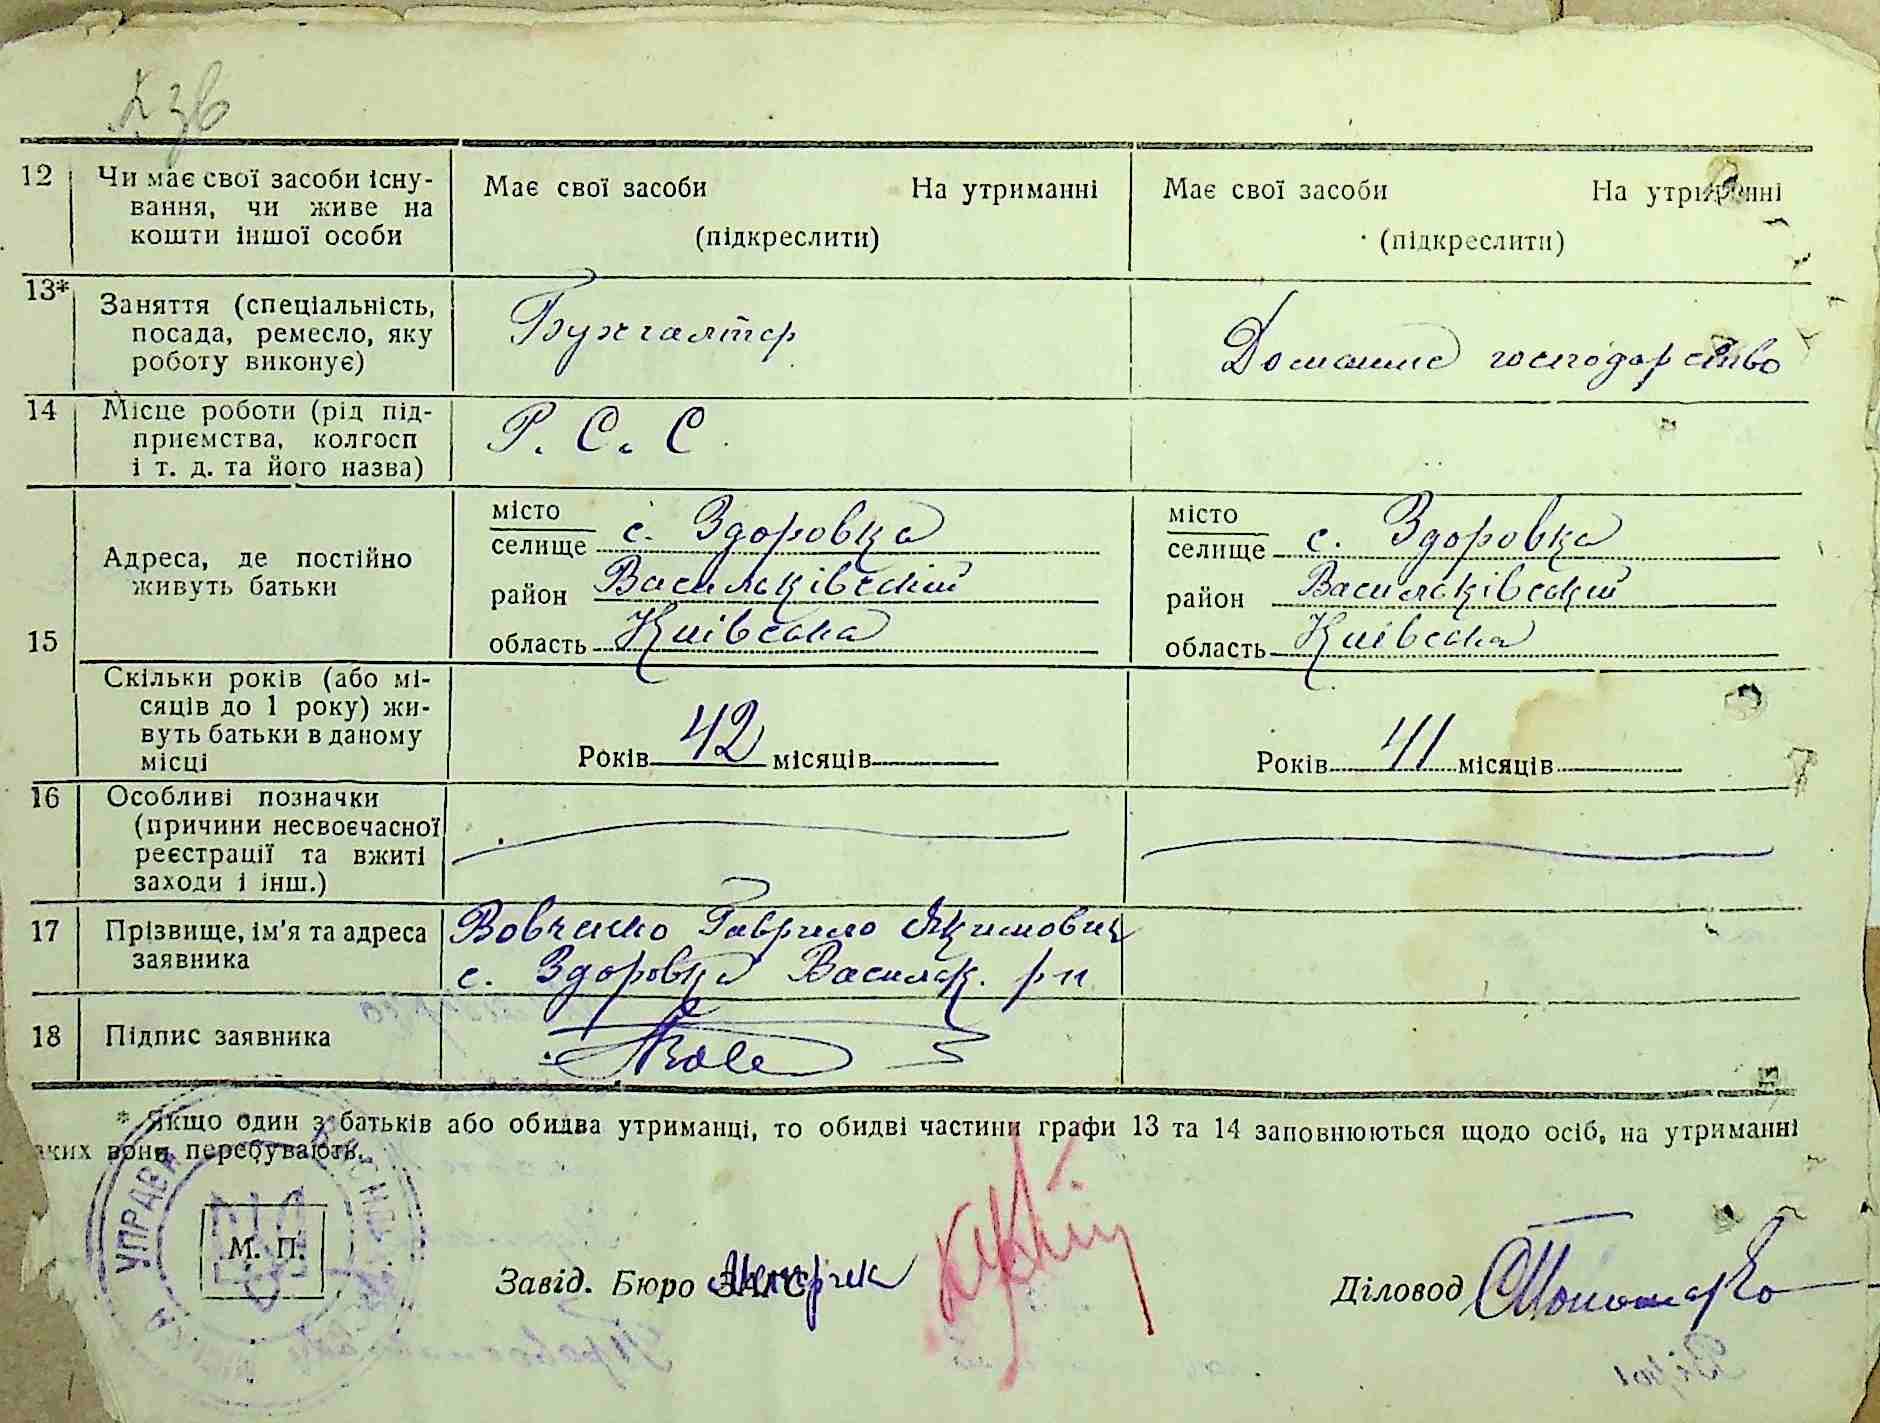 12 Чи має свої засоби існу-
вання, чи живе на
кошти іншої особи
Має свої засоби На утриманні
(підкреслити)
Має свої засоби На утриманні
(підкреслити)
13* Заняття (спеціальність,
посада, ремесло, яку
роботу виконує)
Бухгалтер
Домашнє господарство
14 Місце роботи (рід під-
приємства, колгосп
і т. д. та його назва)
Р. С. С.
15 Адреса, де постійно
живуть батьки
місто
селище с. Здоровка
район Васильківський
область Київська
місто
селище с. Здоровка
район Васильківський
область Київська
Скільки років (або мі-
сяців до 1 року) жи-
вуть батьки в даному
місці
Років 42 місяців
Років 41 місяців
16 Особливі позначки
(причини несвоєчасної
реєстрації та вжиті
заходи і інш.)
17 Прізвище, ім'я та адреса
заявника
Вовченко Гаврило Якимович
с. Здоровка Васильк. р-н
18 Підпис заявника
* Якщо один з батьків або обидва утриманці, то обидві частини графи 13 та 14 заповнюються щодо осіб, на утриманні
яких вони перебувають.
УПРАВА
М. П.
Завід. Бюро ЗАГС
Діловод